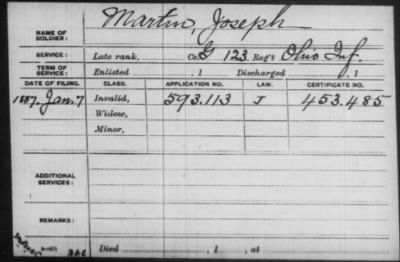 Martin, Joseph
NAME OF SOLDIER:
SERVICE: Late rank, Co. G 123 Reg't Ohio Inf.
TERM OF SERVICE: Enlisted , 1 Discharged , 1
DATE OF FILING. CLASS. APPLICATION NO. LAW. CERTIFICATE NO.
1887. Jan. 7 Invalid, 593.113 J 453.485
Widow,
Minor,
ADDITIONAL SERVICES:
REMARKS:
Died , 1 , at